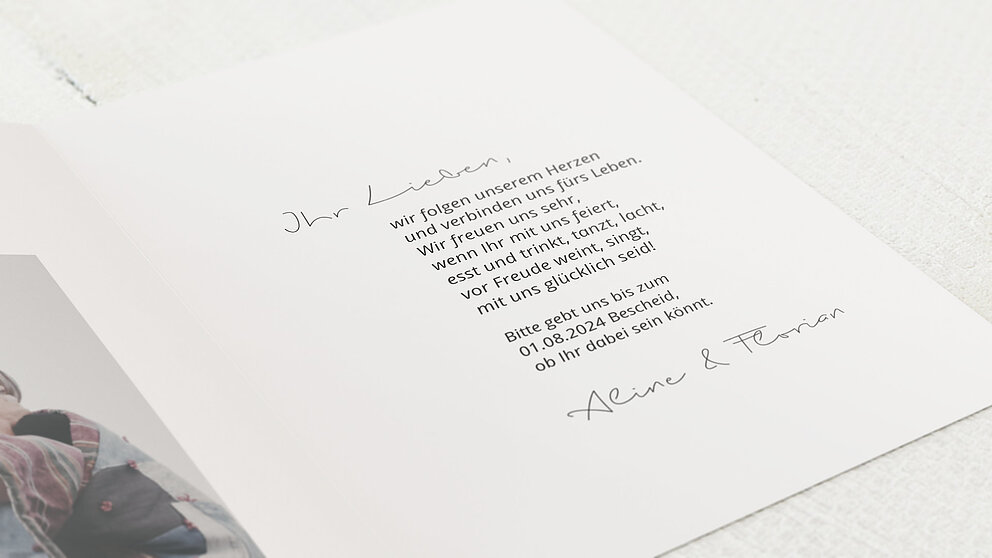 Ihr Lieben,
wir folgen unserem Herzen
und verbinden uns fürs Leben.
Wir freuen uns sehr,
wenn Ihr mit uns feiert,
esst und trinkt, tanzt, lacht,
vor Freude weint, singt,
mit uns glücklich seid!
Bitte gebt uns bis zum
01.08.2024 Bescheid,
ob Ihr dabei sein könnt.
Aline & Florian